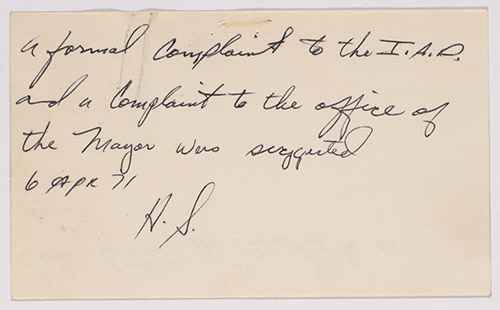 A formal Complaint to the I.A.D.
and a Complaint to the office of
the Mayor was suggested
6 APR 71
H. S.